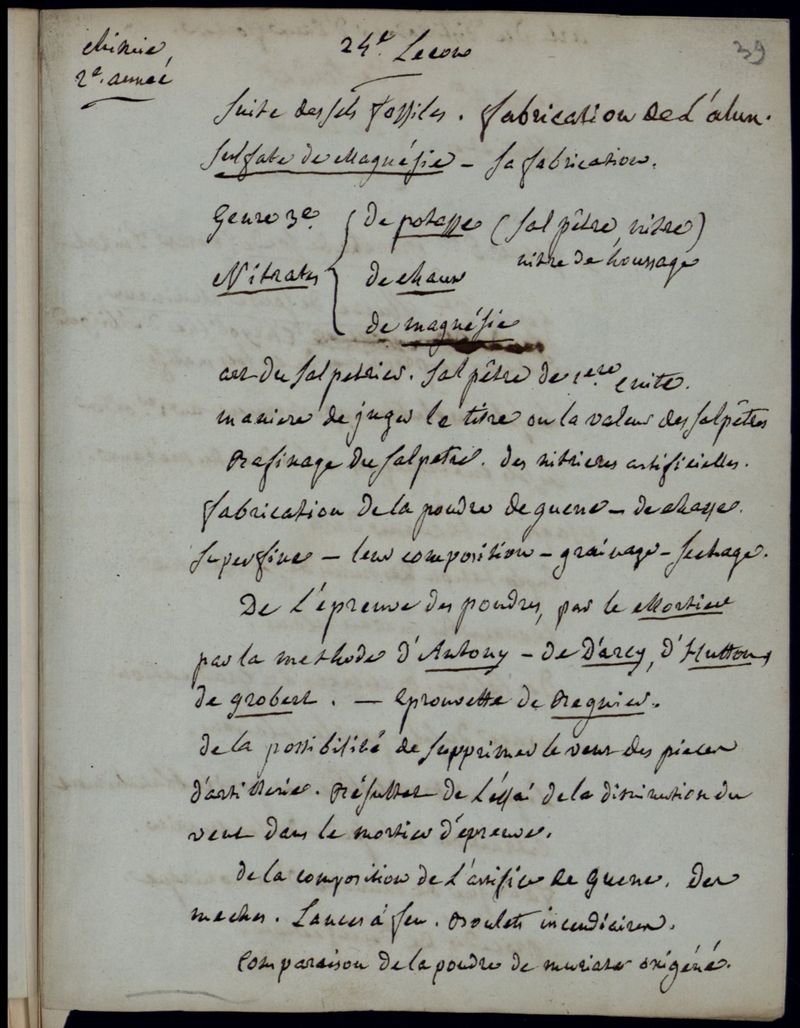 chimie
2e. année
24e Lecon
39
Suite des sels fossiles. fabrication de L'alun.
Sulfate de Magnésie - Sa fabrication.
Genre 3e. de potasse (salpêtre nitre)
nitre de houssage
Nitrates de chaux
de magnésie
art du salpetrier. Salpêtre de 1ere cuite.
maniere de juger le titre ou la valeur des salpêtres
Rafinage du salpetre. des nitrieres artificielles.
fabrication de la poudre de guerre - de chasse.
superfine - leur composition - grainage - sechage.
De L'épreuve des poudres, par le Mortier
par la methode d'Antony - de D'arcy, d'Hutton,
de grobert. - Eprouvette de Regnier.
de la possibilité de supprimer le vent des pieces
d'artillerie. Résultat de L'éssai de la diminution du
vent dans le mortier d'épreuve.
de la composition de L'artifice de guerre. Des
meches. Lances à feu. Boulets incendiaires.
Comparaison de la poudre de muriate oxigéné.